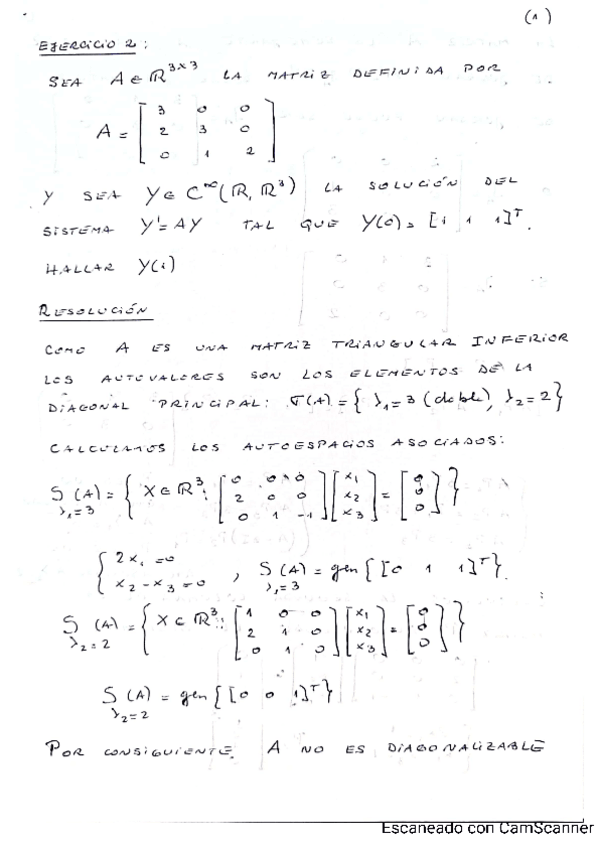 (1)
EJERCICIO 2:
SEA A ∈ ℝ^{3×3} LA MATRIZ DEFINIDA POR
A = [3 0 0; 2 3 0; 0 1 2]
Y SEA Y ∈ C^∞(ℝ, ℝ^3) LA SOLUCIÓN DEL
SISTEMA Y' = AY TAL QUE Y(0) = [1 1 1]^T.
HALLAR Y(1)
RESOLUCIÓN
COMO A ES UNA MATRIZ TRIANGULAR INFERIOR
LOS AUTOVALORES SON LOS ELEMENTOS DE LA
DIAGONAL PRINCIPAL: σ(A) = { λ₁=3 (doble), λ₂=2 }
CALCULAMOS LOS AUTOESPACIOS ASOCIADOS:
S_{λ₁=3}(A) = { X ∈ ℝ^3 : [0 0 0; 2 0 0; 0 1 -1] [x₁; x₂; x₃] = [0; 0; 0] }
{ 2x₁ = 0; x₂ - x₃ = 0 , S_{λ₁=3}(A) = gen { [0 1 1]^T }.
S_{λ₂=2}(A) = { X ∈ ℝ^3 : [1 0 0; 2 1 0; 0 1 0] [x₁; x₂; x₃] = [0; 0; 0] }
S_{λ₂=2}(A) = gen { [0 0 1]^T }
POR CONSIGUIENTE, A NO ES DIAGONALIZABLE
Escaneado con CamScanner